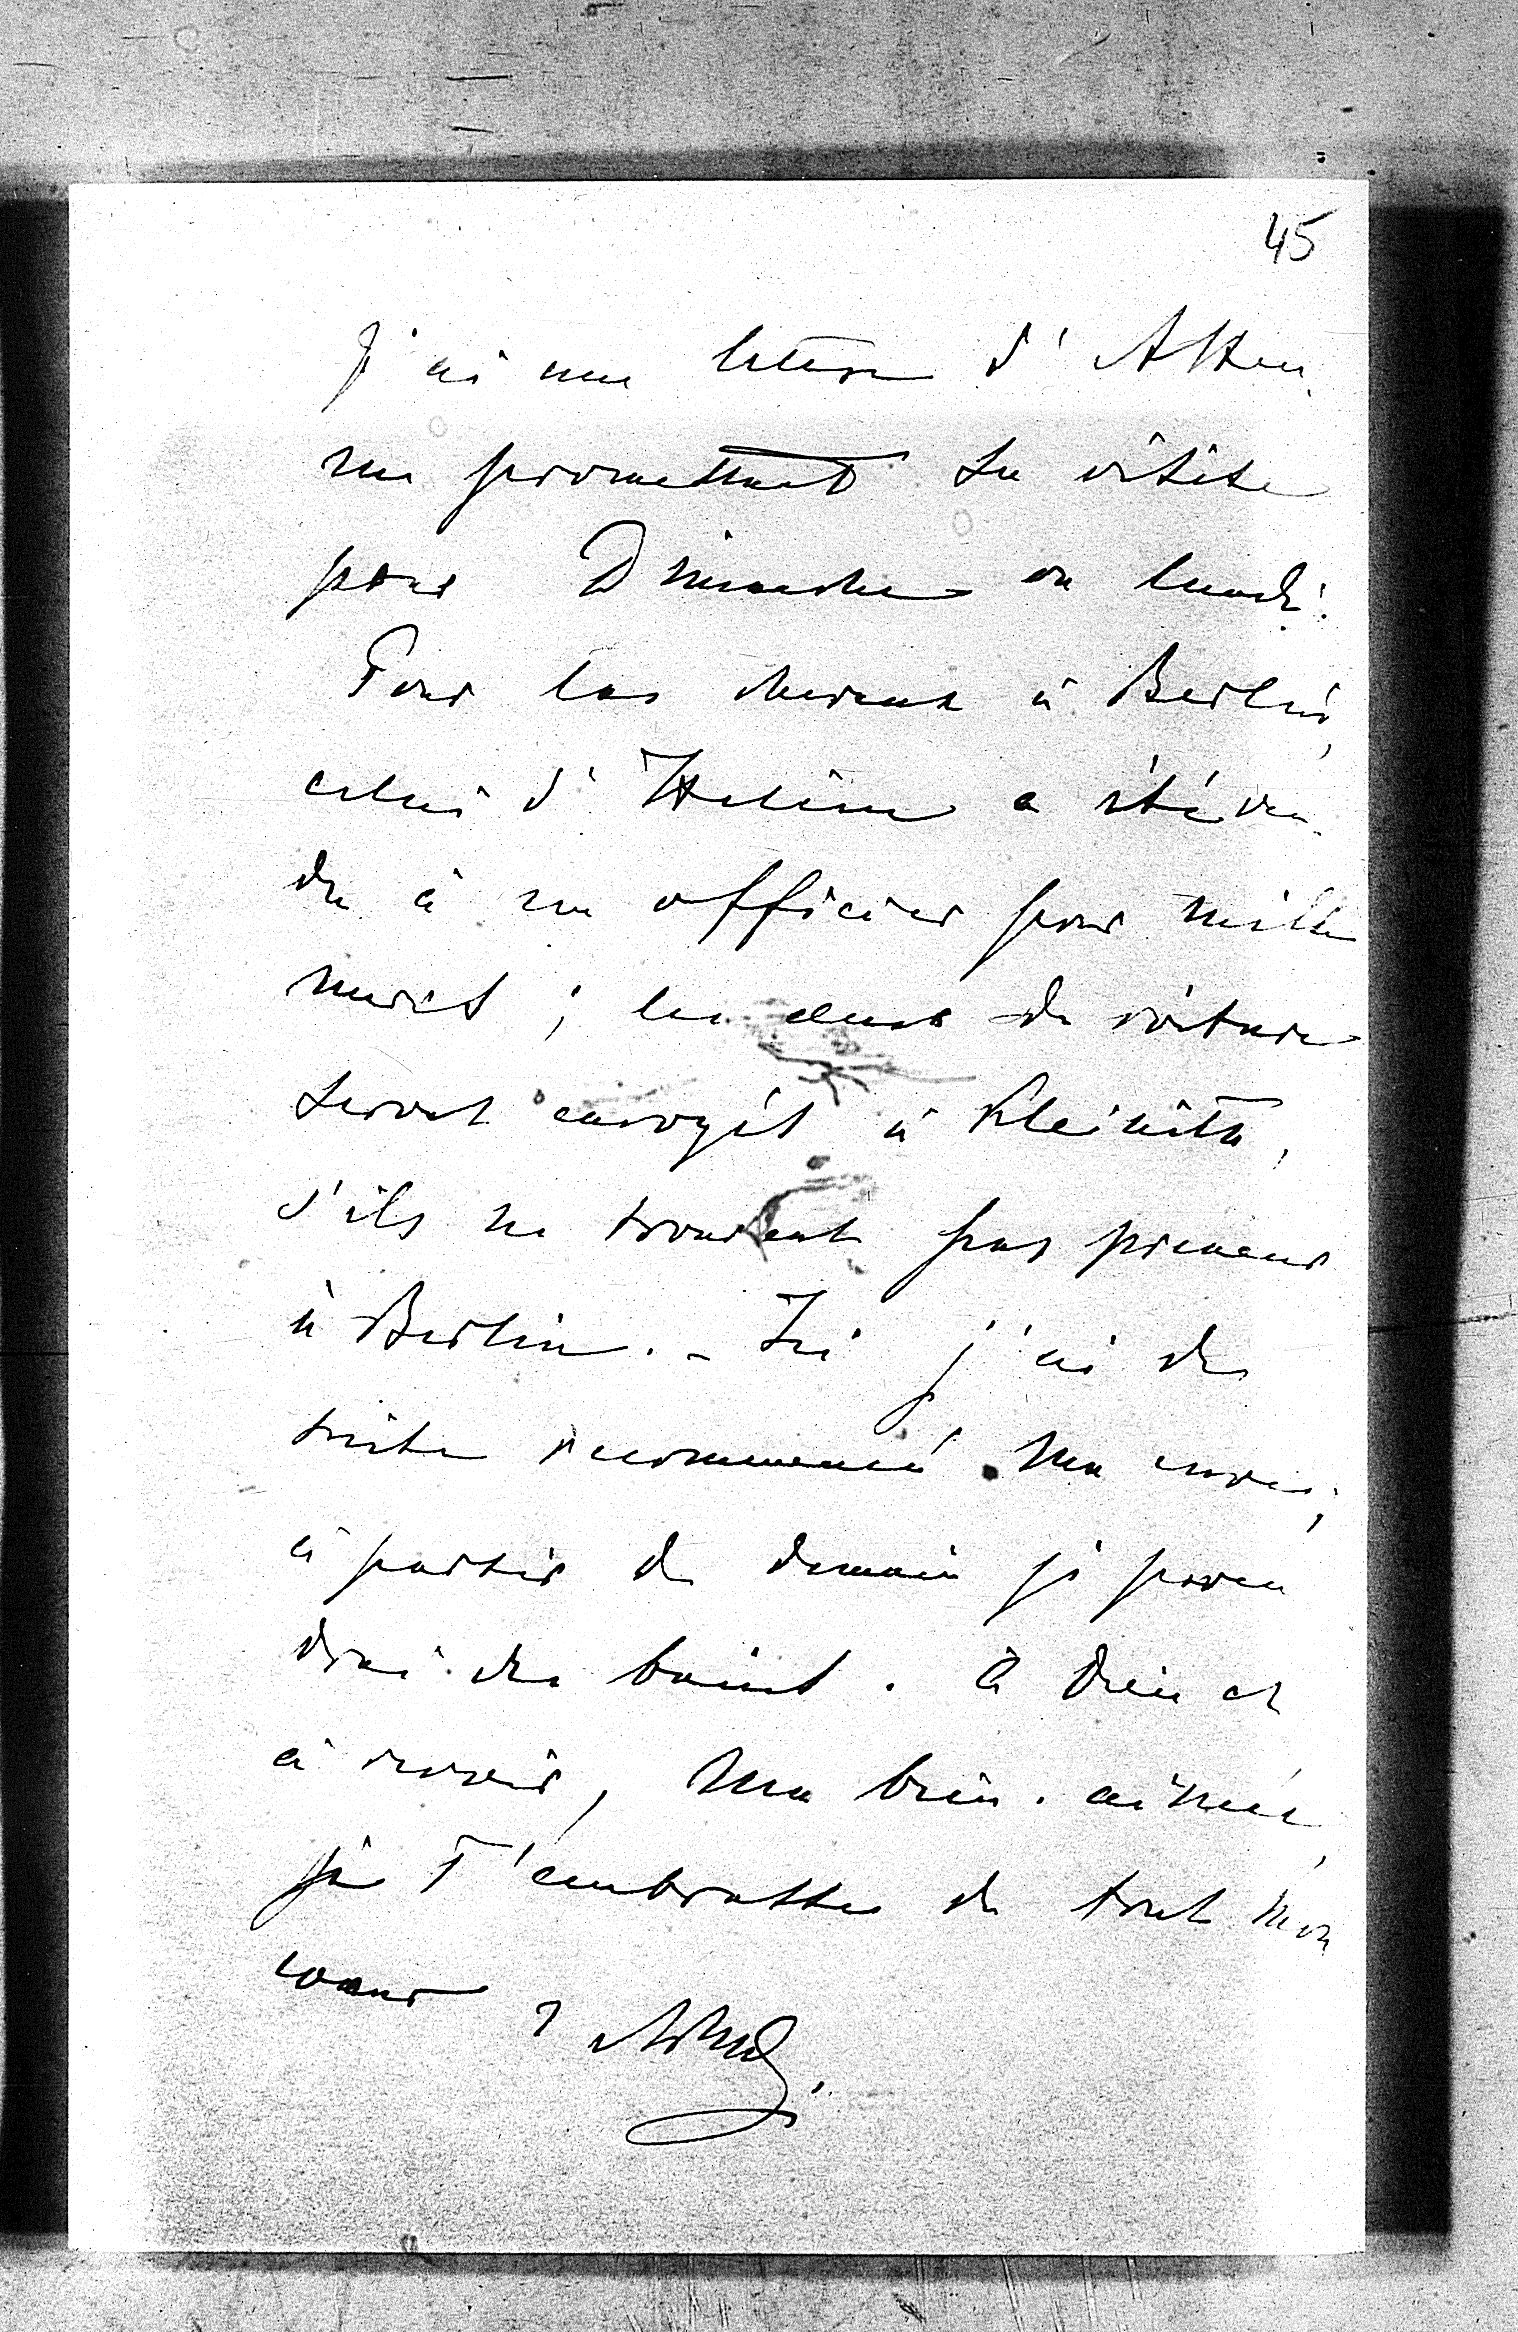 45
J'ai une lettre d'Alten
me promettant sa visite
pour Dimanche ou lundi.
Pour les chevaux à Berlin,
celui d'Hélène a été ven-
du à un officier pour mille
marcs ; les deux de voiture
seront envoyés à Kleinitz,
s'ils ne trouvent pas preneur
à Berlin. – Ici j'ai de
suite recommencé ma cure ;
à partir de demain je pren
drai des bains. à Dieu et
à revoir, ma bien-aimée,
je T'embrasse de tout mon
coeur